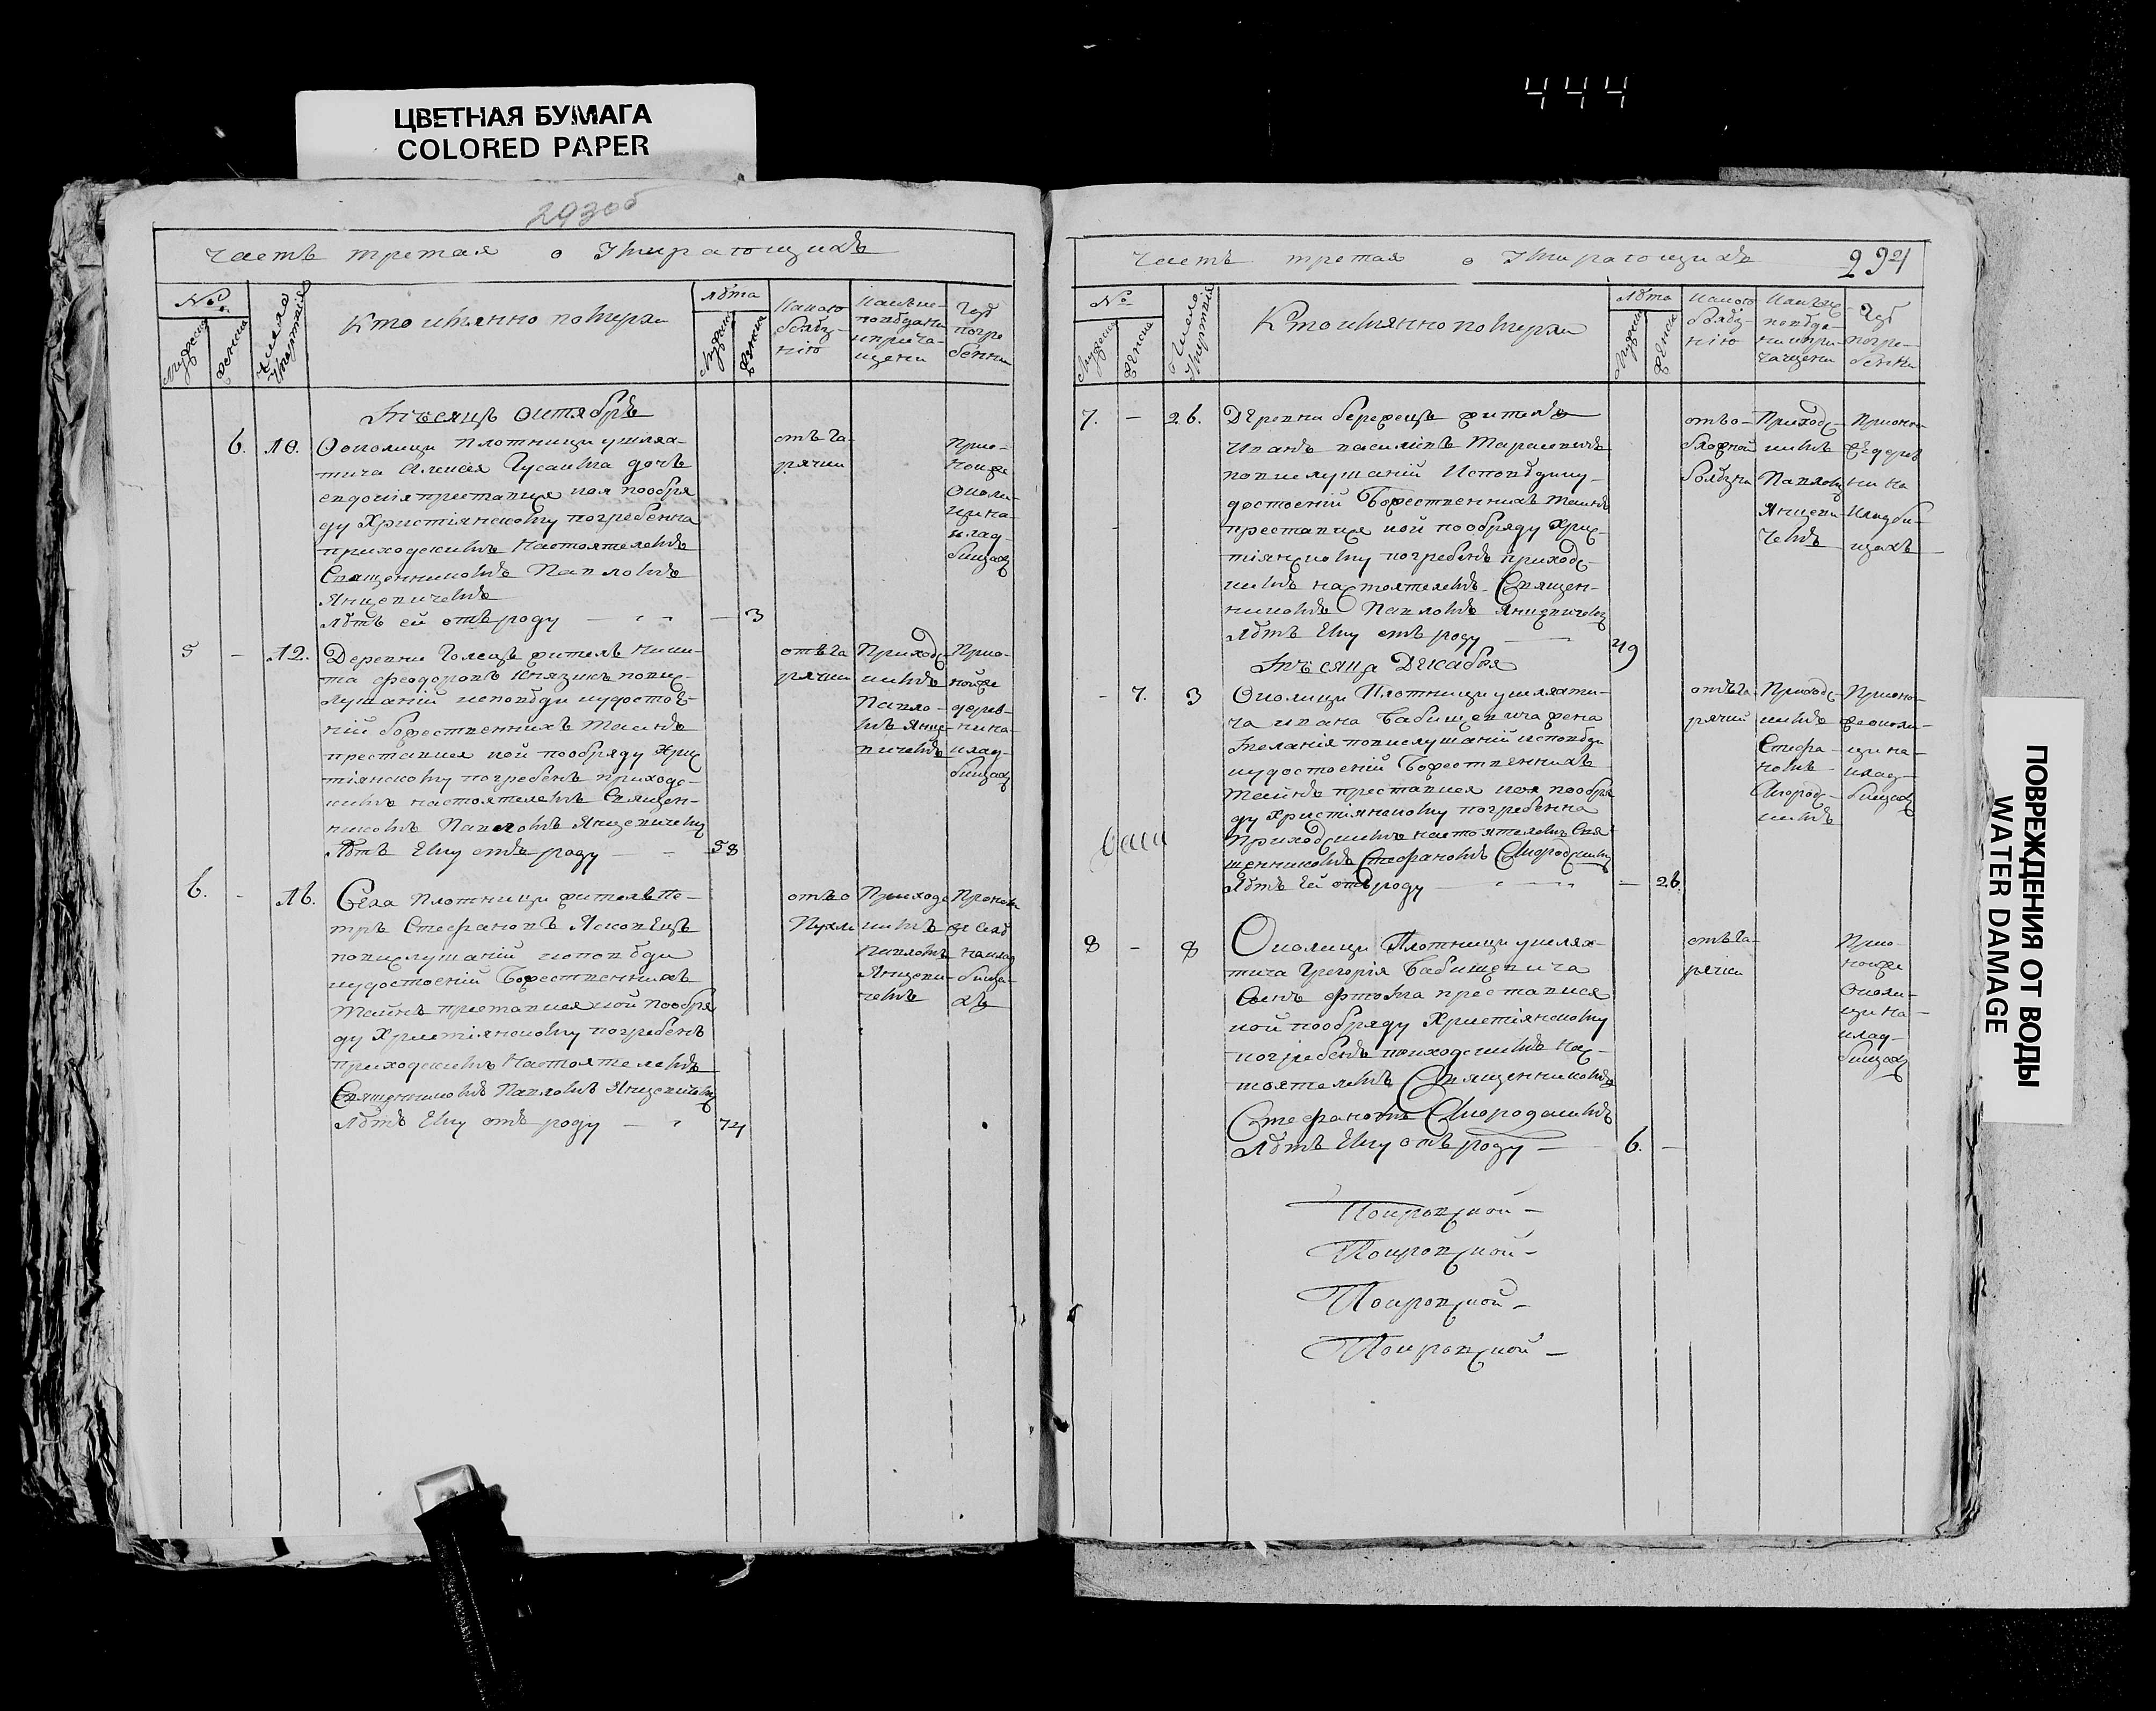 ЦВЕТНАЯ БУМАГА
COLORED PAPER
444
293 об
часть третая о Умирающихъ
№
Мужеска
Женска
Числа Умертвія
Кто имянно померли
Лѣта
Мужеска
Женска
Какою
болѣз-
нію
погре
бенны
Мѣсяцъ Октябръ
6. 10.
Околици Плотници у шлях-
тича Алексея Гусакима дочь
преставися коя по обря
ду Христіянскому погребенна
приходскимъ Настоятелемъ
Священникомъ Павломъ
Янцевичемъ
Лѣтъ ей отъ роду — — 3
отъ га-
рячки
При о-
ной же
Околи-
ци на
клад-
бищахъ
5 — 12.
Деревни Голецъ житель Ники-
та Феодоровъ Князикъ повис-
лушаній исповѣди и удостое-
ній божественнихъ Таинъ
преставися кой по обряду Хрис
тіянскому погребенъ приходс-
кимъ настоятелемъ Священ-
никомъ Павломъ Янцевичемъ
Лѣтъ Ему отъ роду — 58
отъ га
рячки
Приходс-
кимъ
Павло-
мъ Янце-
вичемъ
При о-
ной же
дерев-
ни на
клад-
бищахъ
6. — 16.
Села Плотници житель Пе-
тръ Стефановъ Ясковецъ
повислушаній исповѣди
и удостоеній Божественнихъ
Таинъ преставися кой по обря
ду Христіянскому погребенъ
приходскимъ Настоятелемъ
Священникомъ Павломъ Янцевичемъ
Лѣтъ Ему отъ роду — 74
отъ о
Пухли
Приходс
кимъ
Павломъ
Янцеви-
чемъ
При оном
же селѣ
на клад
бища-
хъ
часть третая о Умирающихъ
294
№
Мужеска
Женска
Число Умертвія
Кто имянно померли
Лѣта
Мужеска
Женска
Какою
болѣз-
нію
погре-
бенны
7. — 26.
Деревни Бережецъ житель
Иванъ Василіевъ Тарасевичъ
повислушаній Исповѣди и у-
достоеній Божественнихъ Таинъ
преставися кой по обряду Хрис-
тіянскому погребенъ приходс-
кимъ настоятелемъ Священ-
никомъ Павломъ Янцевичемъ
Лѣтъ Ему отъ роду — 49
болѣзни
Приходс-
кимъ
Павлом
Янцеви-
чемъ
При оной
же дерев
ни на
кладби-
щахъ
Мѣсяца Декабря
— 7. 3
Околици Плотници у шляхти-
ча Ивана Бабищевича жена
Меланія повислушаній исповѣди
и удостоеній Божественнихъ
Таинъ преставися коя по обря
ду Христіянскому погребенна
Приходскимъ настоятелемъ Свя
щенникомъ Стефаномъ Смородскимъ
Лѣтъ Ей отъ роду — — 26.
отъ га-
рячки
Приходс-
кимъ
Стефа-
номъ
Смородс-
кимъ
При оно-
же околи-
ци на-
клад-
бищахъ
8 — 8
Околици Плотници у шлях-
тича Григорія Бабищевича
Синъ преставися
кой по обряду Христіянскому
погребенъ приходскимъ Нас-
тоятелемъ Священникомъ
Стефаномъ Смородскимъ
Лѣтъ Ему отъ роду — 6. —
отъ га-
рячки
При о-
ной же
Околи-
ци на-
клад-
бищахъ
Покровской —
Покровской —
Покровской —
Покровской —
ПОВРЕЖДЕНИЯ ОТ ВОДЫ
WATER DAMAGE